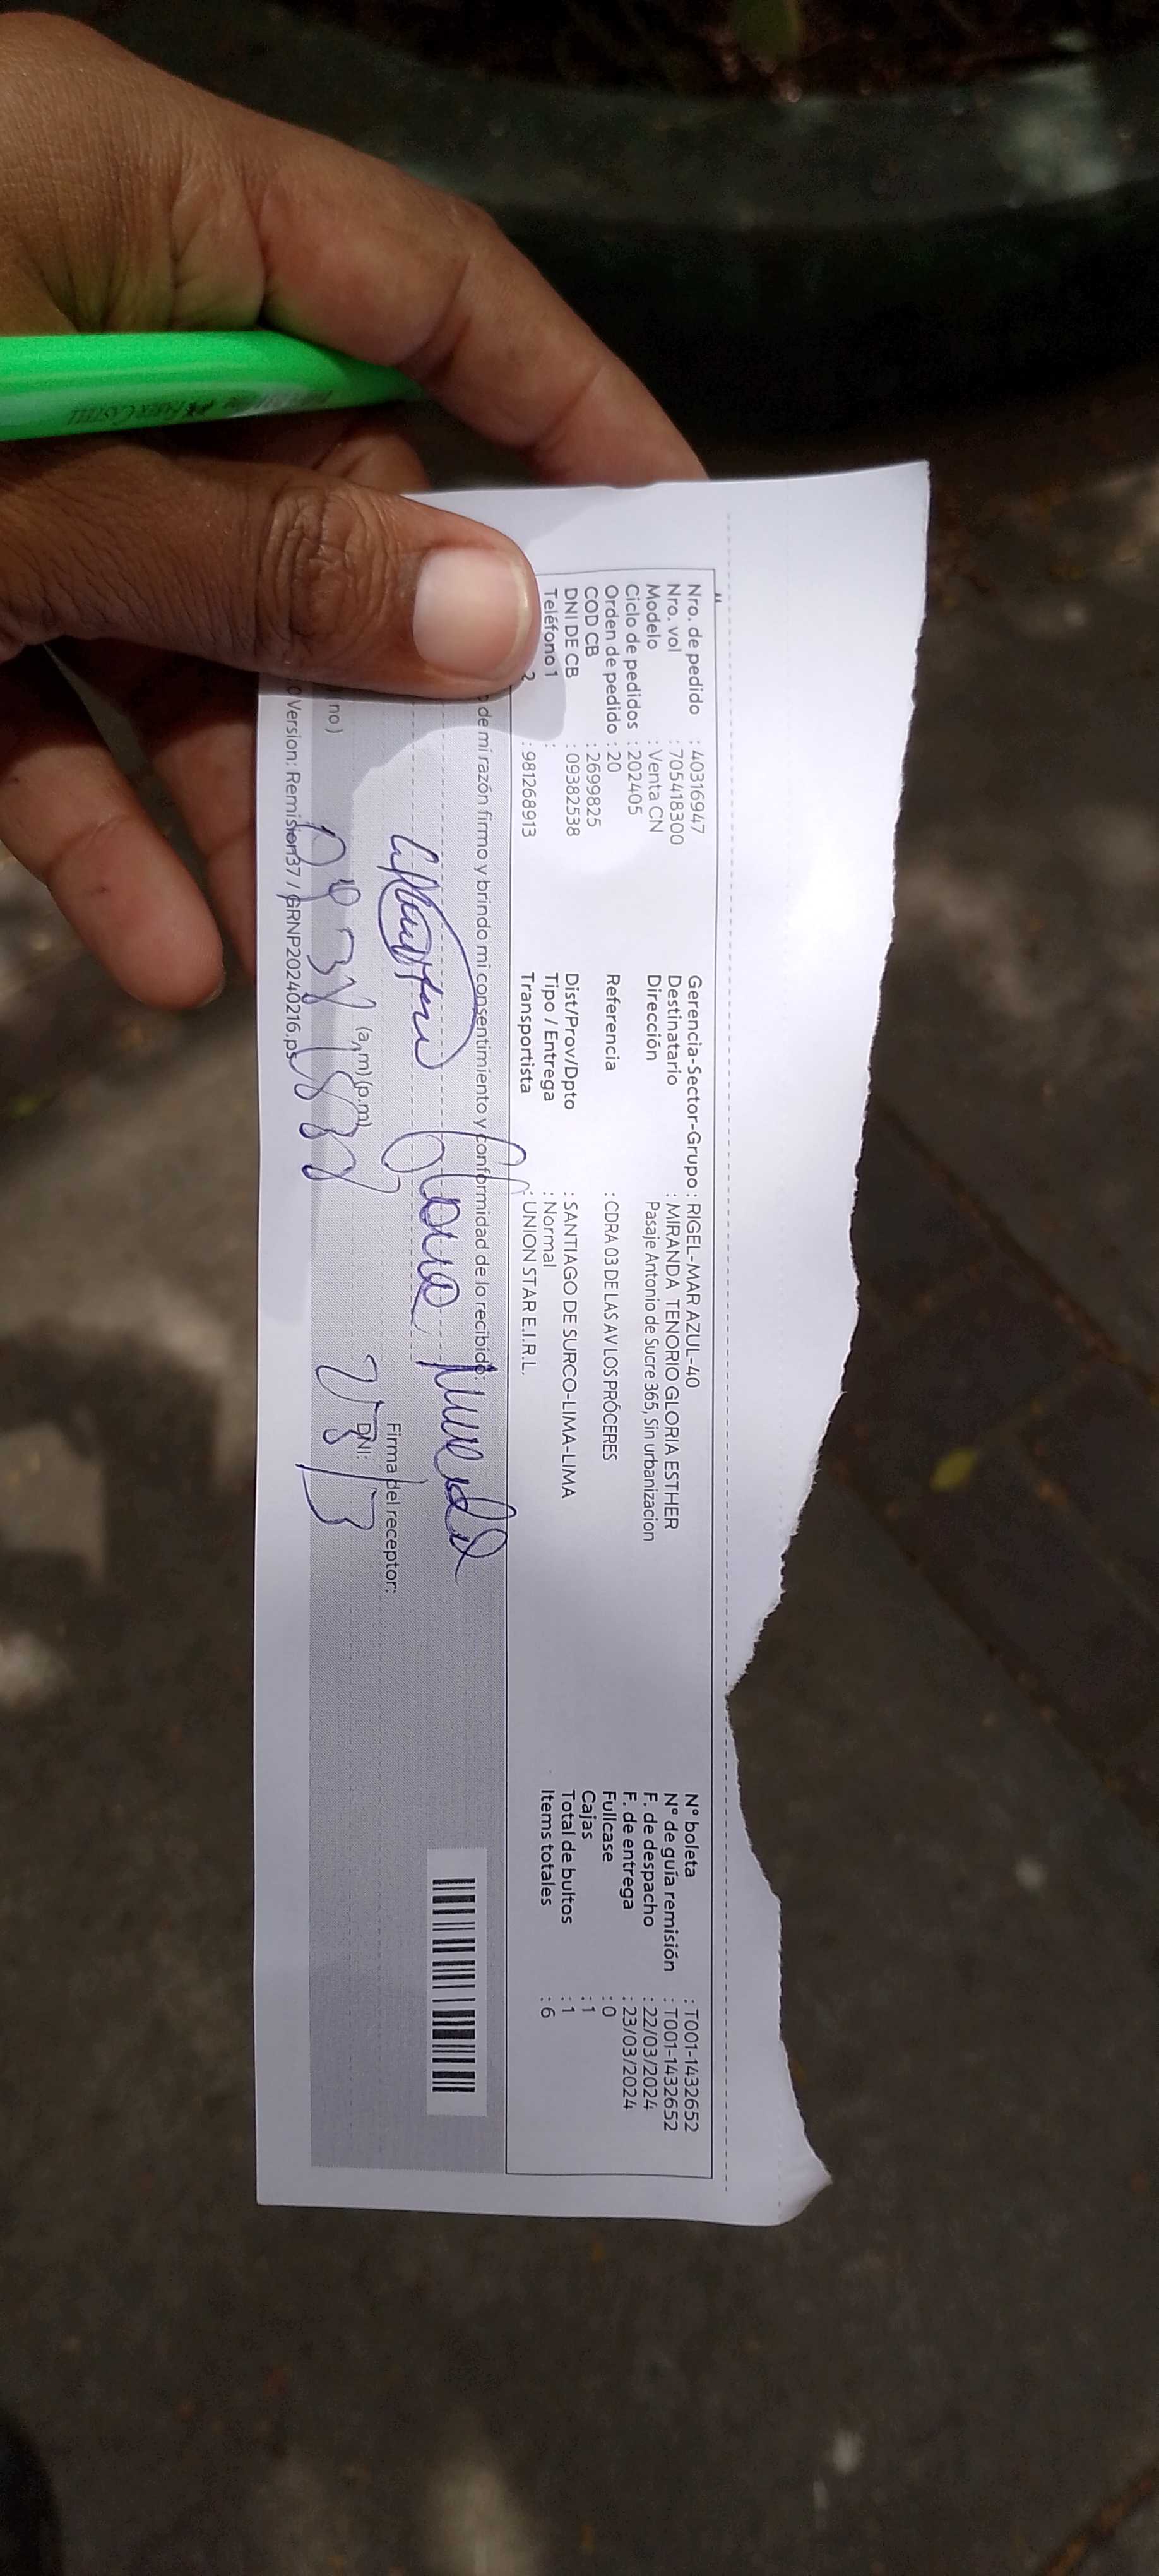 Nro. de pedido : 40316947
Nro. vol : 705418300
Modelo : Venta CN
Ciclo de pedidos : 202405
Orden de pedido : 20
COD CB : 2699825
DNI DE CB : 09382538
Teléfono 1 :
2 : 981268913
Gerencia-Sector-Grupo : RIGEL-MAR AZUL-40
Destinatario : MIRANDA TENORIO GLORIA ESTHER
Dirección Pasaje Antonio de Sucre 365, Sin urbanizacion
Referencia : CDRA 03 DE LAS AV LOS PRÓCERES
Dist/Prov/Dpto : SANTIAGO DE SURCO-LIMA-LIMA
Tipo / Entrega : Normal
Transportista : UNION STAR E.I.R.L.
N° boleta : T001-1432652
N° de guía remisión : T001-1432652
F. de despacho : 22/03/2024
F. de entrega : 23/03/2024
Fullcase : 0
Cajas : 1
Total de bultos : 1
Items totales : 6
de mi razón firmo y brindo mi consentimiento y conformidad de lo recibido:
Firma del receptor:
no) (a.m) (p.m) DNI:
23/3
Version: Remision37 / GRNP20240216.ps
FABER-CASTELL